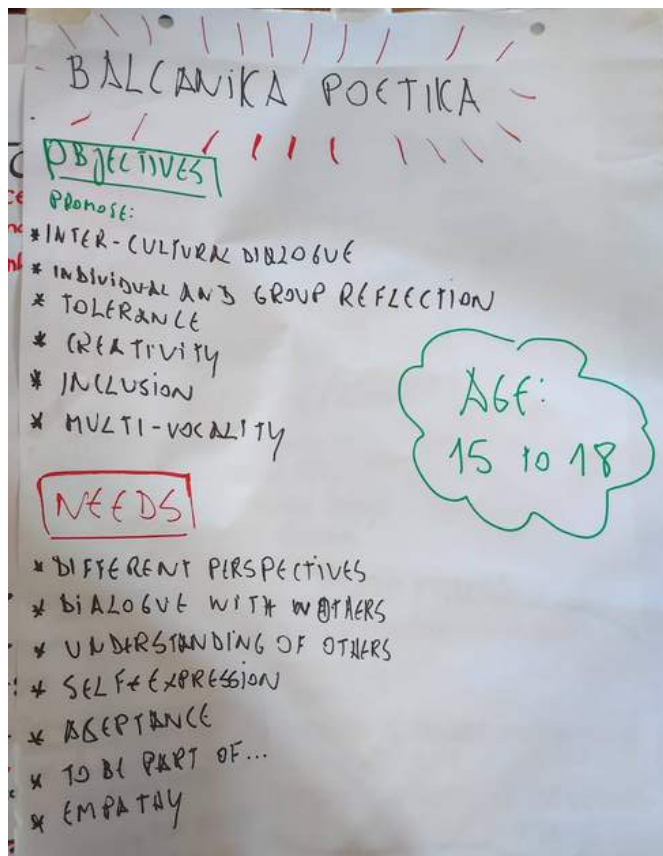 BALCANIKA POETIKA
OBJECTIVES
PROMOSE:
* INTER-CULTURAL DIALOGUE
* INDIVIDUAL AND GROUP REFLECTION
* TOLERANCE
* CREATIVITY
* INCLUSION
* MULTI-VOCALITY
AGE:
15 TO 18
NEEDS
* DIFFERENT PERSPECTIVES
* DIALOGUE WITH OTHERS
* UNDERSTANDING OF OTHERS
* SELF EXPRESSION
* ACEPTANCE
* TO BE PART OF...
* EMPATHY